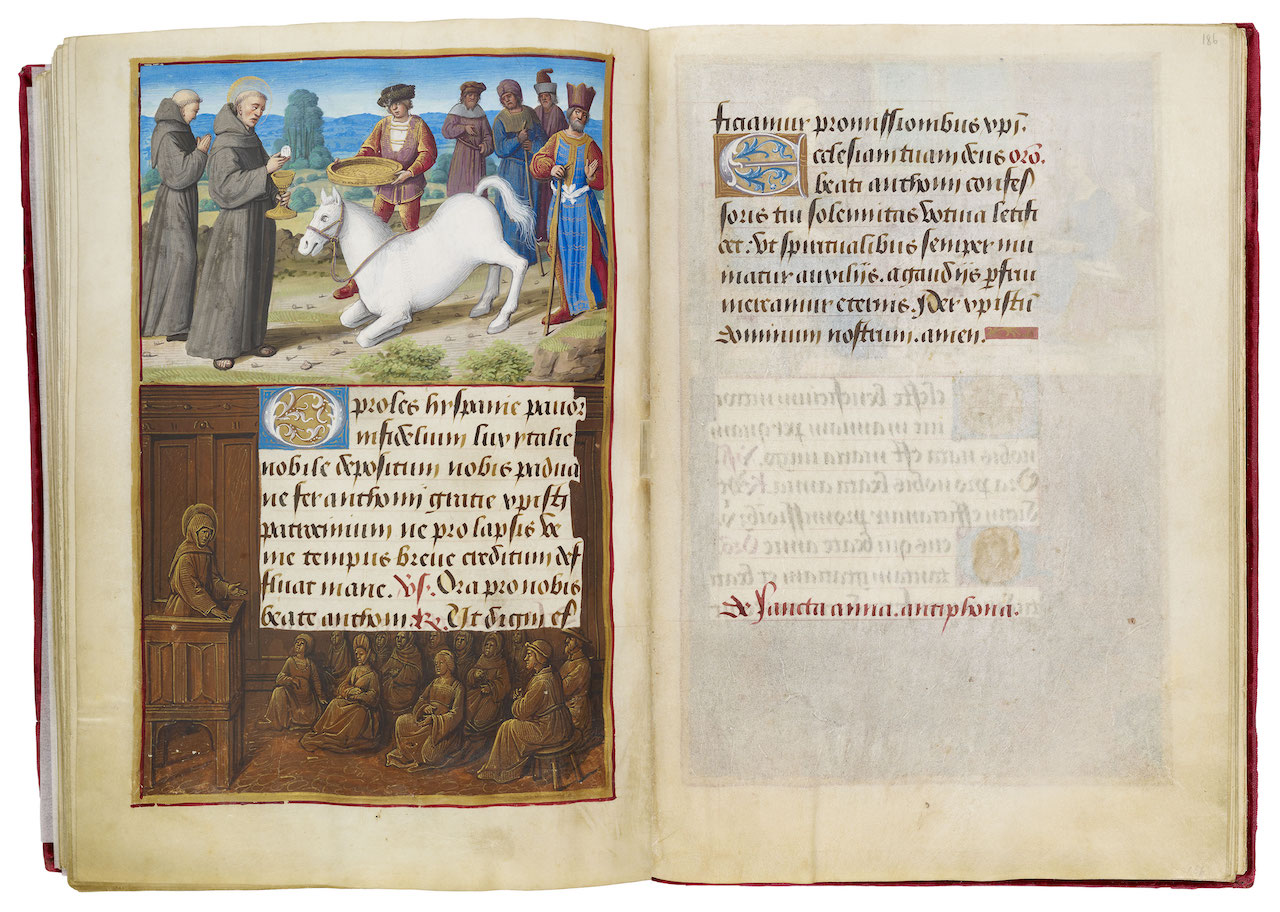 186
O proles hyspanie pavor
infidelium lux ytalie
nobile depositum nobis padua
ne fer anthoni gracie xpisti
patrocinium ne prolapsis ve
nie tempus breve creditum def
fluat inane. Vs. Ora pro nobis
beate anthoni. R. Ut digni ef
ficiamur promissionibus xpi.
Ecclesiam tuam deus oro.
beati anthoni confes
soris tui solemnitas votiva letifi
cet: Ut spiritualibus semper mu
niatur auxiliis. a gaudiis perfrui
mereamur eternis. Per xpistum
dominum nostrum. amen.
De sancta anna. antiphona.